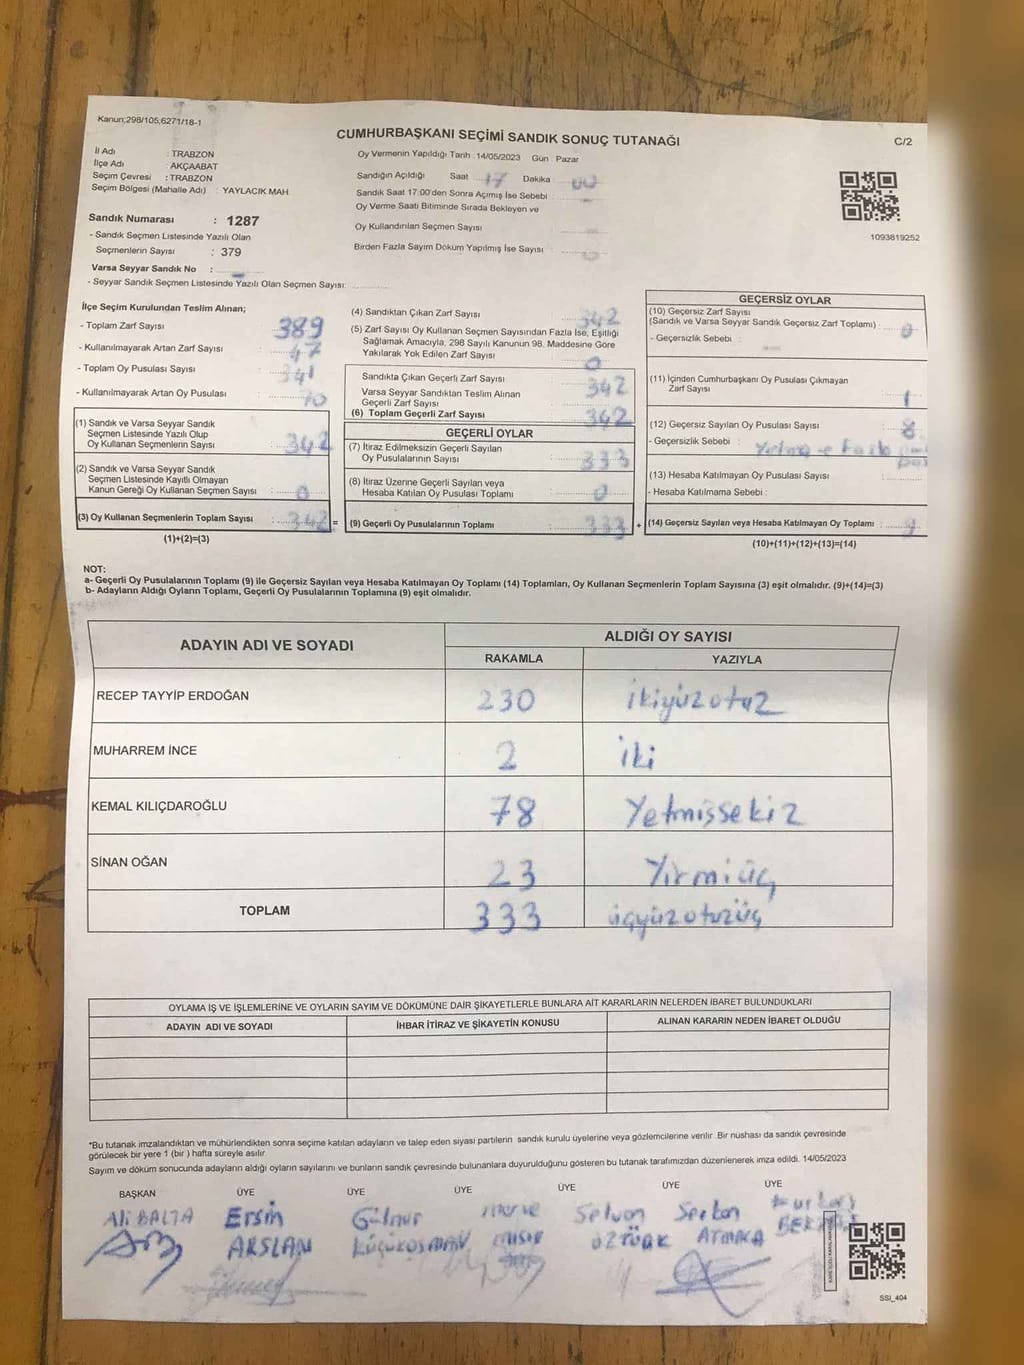 Kanun;298/105,6271/18-1
CUMHURBAŞKANI SEÇİMİ SANDIK SONUÇ TUTANAĞI
C/2
İl Adı : TRABZON
İlçe Adı : AKÇAABAT
Seçim Çevresi : TRABZON
Seçim Bölgesi (Mahalle Adı) : YAYLACIK MAH.
Sandık Numarası : 1287
- Sandık Seçmen Listesinde Yazılı Olan
Seçmenlerin Sayısı : 379
Varsa Seyyar Sandık No :
- Seyyar Sandık Seçmen Listesinde Yazılı Olan Seçmen Sayısı:
Oy Vermenin Yapıldığı Tarih : 14/05/2023 Gün Pazar
Sandığın Açıldığı Saat 17 Dakika 00
Sandık Saat 17:00'den Sonra Açımış İse Sebebi :
Oy Verme Saati Bitiminde Sırada Bekleyen ve
Oy Kullandırılan Seçmen Sayısı
Birden Fazla Sayım Döküm Yapılmış İse Sayısı :
1093819252
İlçe Seçim Kurulundan Teslim Alınan;
- Toplam Zarf Sayısı : 389
- Kullanılmayarak Artan Zarf Sayısı : 47
- Toplam Oy Pusulası Sayısı : 341
- Kullanılmayarak Artan Oy Pusulası :
(1) Sandık ve Varsa Seyyar Sandık
Seçmen Listesinde Yazılı Olup
Oy Kullanan Seçmenlerin Sayısı : 342
(2) Sandık ve Varsa Seyyar Sandık
Seçmen Listesinde Kayıtlı Olmayan
Kanun Gereği Oy Kullanan Seçmen Sayısı : 0
(3) Oy Kullanan Seçmenlerin Toplam Sayısı : 342 =
(1)+(2)=(3)
(4) Sandıktan Çıkan Zarf Sayısı : 342
(5) Zarf Sayısı Oy Kullanan Seçmen Sayısından Fazla İse, Eşitliği
Sağlamak Amacıyla, 298 Sayılı Kanunun 98. Maddesine Göre
Yakılarak Yok Edilen Zarf Sayısı : 0
Sandıkta Çıkan Geçerli Zarf Sayısı : 342
Varsa Seyyar Sandıktan Teslim Alınan
Geçerli Zarf Sayısı :
(6) Toplam Geçerli Zarf Sayısı : 342
GEÇERLİ OYLAR
(7) İtiraz Edilmeksizin Geçerli Sayılan
Oy Pusulalarının Sayısı : 333
(8) İtiraz Üzerine Geçerli Sayılan veya
Hesaba Katılan Oy Pusulası Toplamı : 0
(9) Geçerli Oy Pusulalarının Toplamı : 333 +
GEÇERSİZ OYLAR
(10) Geçersiz Zarf Sayısı
(Sandık ve Varsa Seyyar Sandık Geçersiz Zarf Toplamı) : 0
- Geçersizlik Sebebi :
(11) İçinden Cumhurbaşkanı Oy Pusulası Çıkmayan
Zarf Sayısı : 1
(12) Geçersiz Sayılan Oy Pusulası Sayısı : 8
- Geçersizlik Sebebi :
(13) Hesaba Katılmayan Oy Pusulası Sayısı :
- Hesaba Katılmama Sebebi :
(14) Geçersiz Sayılan veya Hesaba Katılmayan Oy Toplamı : 9
(10)+(11)+(12)+(13)=(14)
NOT:
a- Geçerli Oy Pusulalarının Toplamı (9) ile Geçersiz Sayılan veya Hesaba Katılmayan Oy Toplamı (14) Toplamları, Oy Kullanan Seçmenlerin Toplam Sayısına (3) eşit olmalıdır. (9)+(14)=(3)
b- Adayların Aldığı Oyların Toplamı, Geçerli Oy Pusulalarının Toplamına (9) eşit olmalıdır.
ADAYIN ADI VE SOYADI ALDIĞI OY SAYISI
RAKAMLA YAZIYLA
RECEP TAYYİP ERDOĞAN 230 ikiyüzotuz
MUHARREM İNCE 2 iki
KEMAL KILIÇDAROĞLU 78 Yetmişsekiz
SİNAN OĞAN 23 Yirmiüç
TOPLAM 333 üçyüzotuzüç
OYLAMA İŞ VE İŞLEMLERİNE VE OYLARIN SAYIM VE DÖKÜMÜNE DAİR ŞİKAYETLERLE BUNLARA AİT KARARLARIN NELERDEN İBARET BULUNDUKLARI
ADAYIN ADI VE SOYADI İHBAR İTİRAZ VE ŞİKAYETİN KONUSU ALINAN KARARIN NEDEN İBARET OLDUĞU
*Bu tutanak imzalandıktan ve mühürlendikten sonra seçime katılan adayların ve talep eden siyasi partilerin sandık kurulu üyelerine veya gözlemcilerine verilir .Bir nüshası da sandık çevresinde
görülecek bir yere 1 (bir ) hafta süreyle asılır
Sayım ve döküm sonucunda adayların aldığı oyların sayılarını ve bunların sandık çevresinde bulunanlara duyurulduğunu gösteren bu tutanak tarafımızdan düzenlenerek imza edildi. 14/05/2023
BAŞKAN ÜYE ÜYE ÜYE ÜYE ÜYE ÜYE
Ali BALTA Ersin Gülnur Merve Selvan Serkan
ARSLAN KÜÇÜKOSMAN MISIR ÖZTÜRK ATMACA
SSI_404